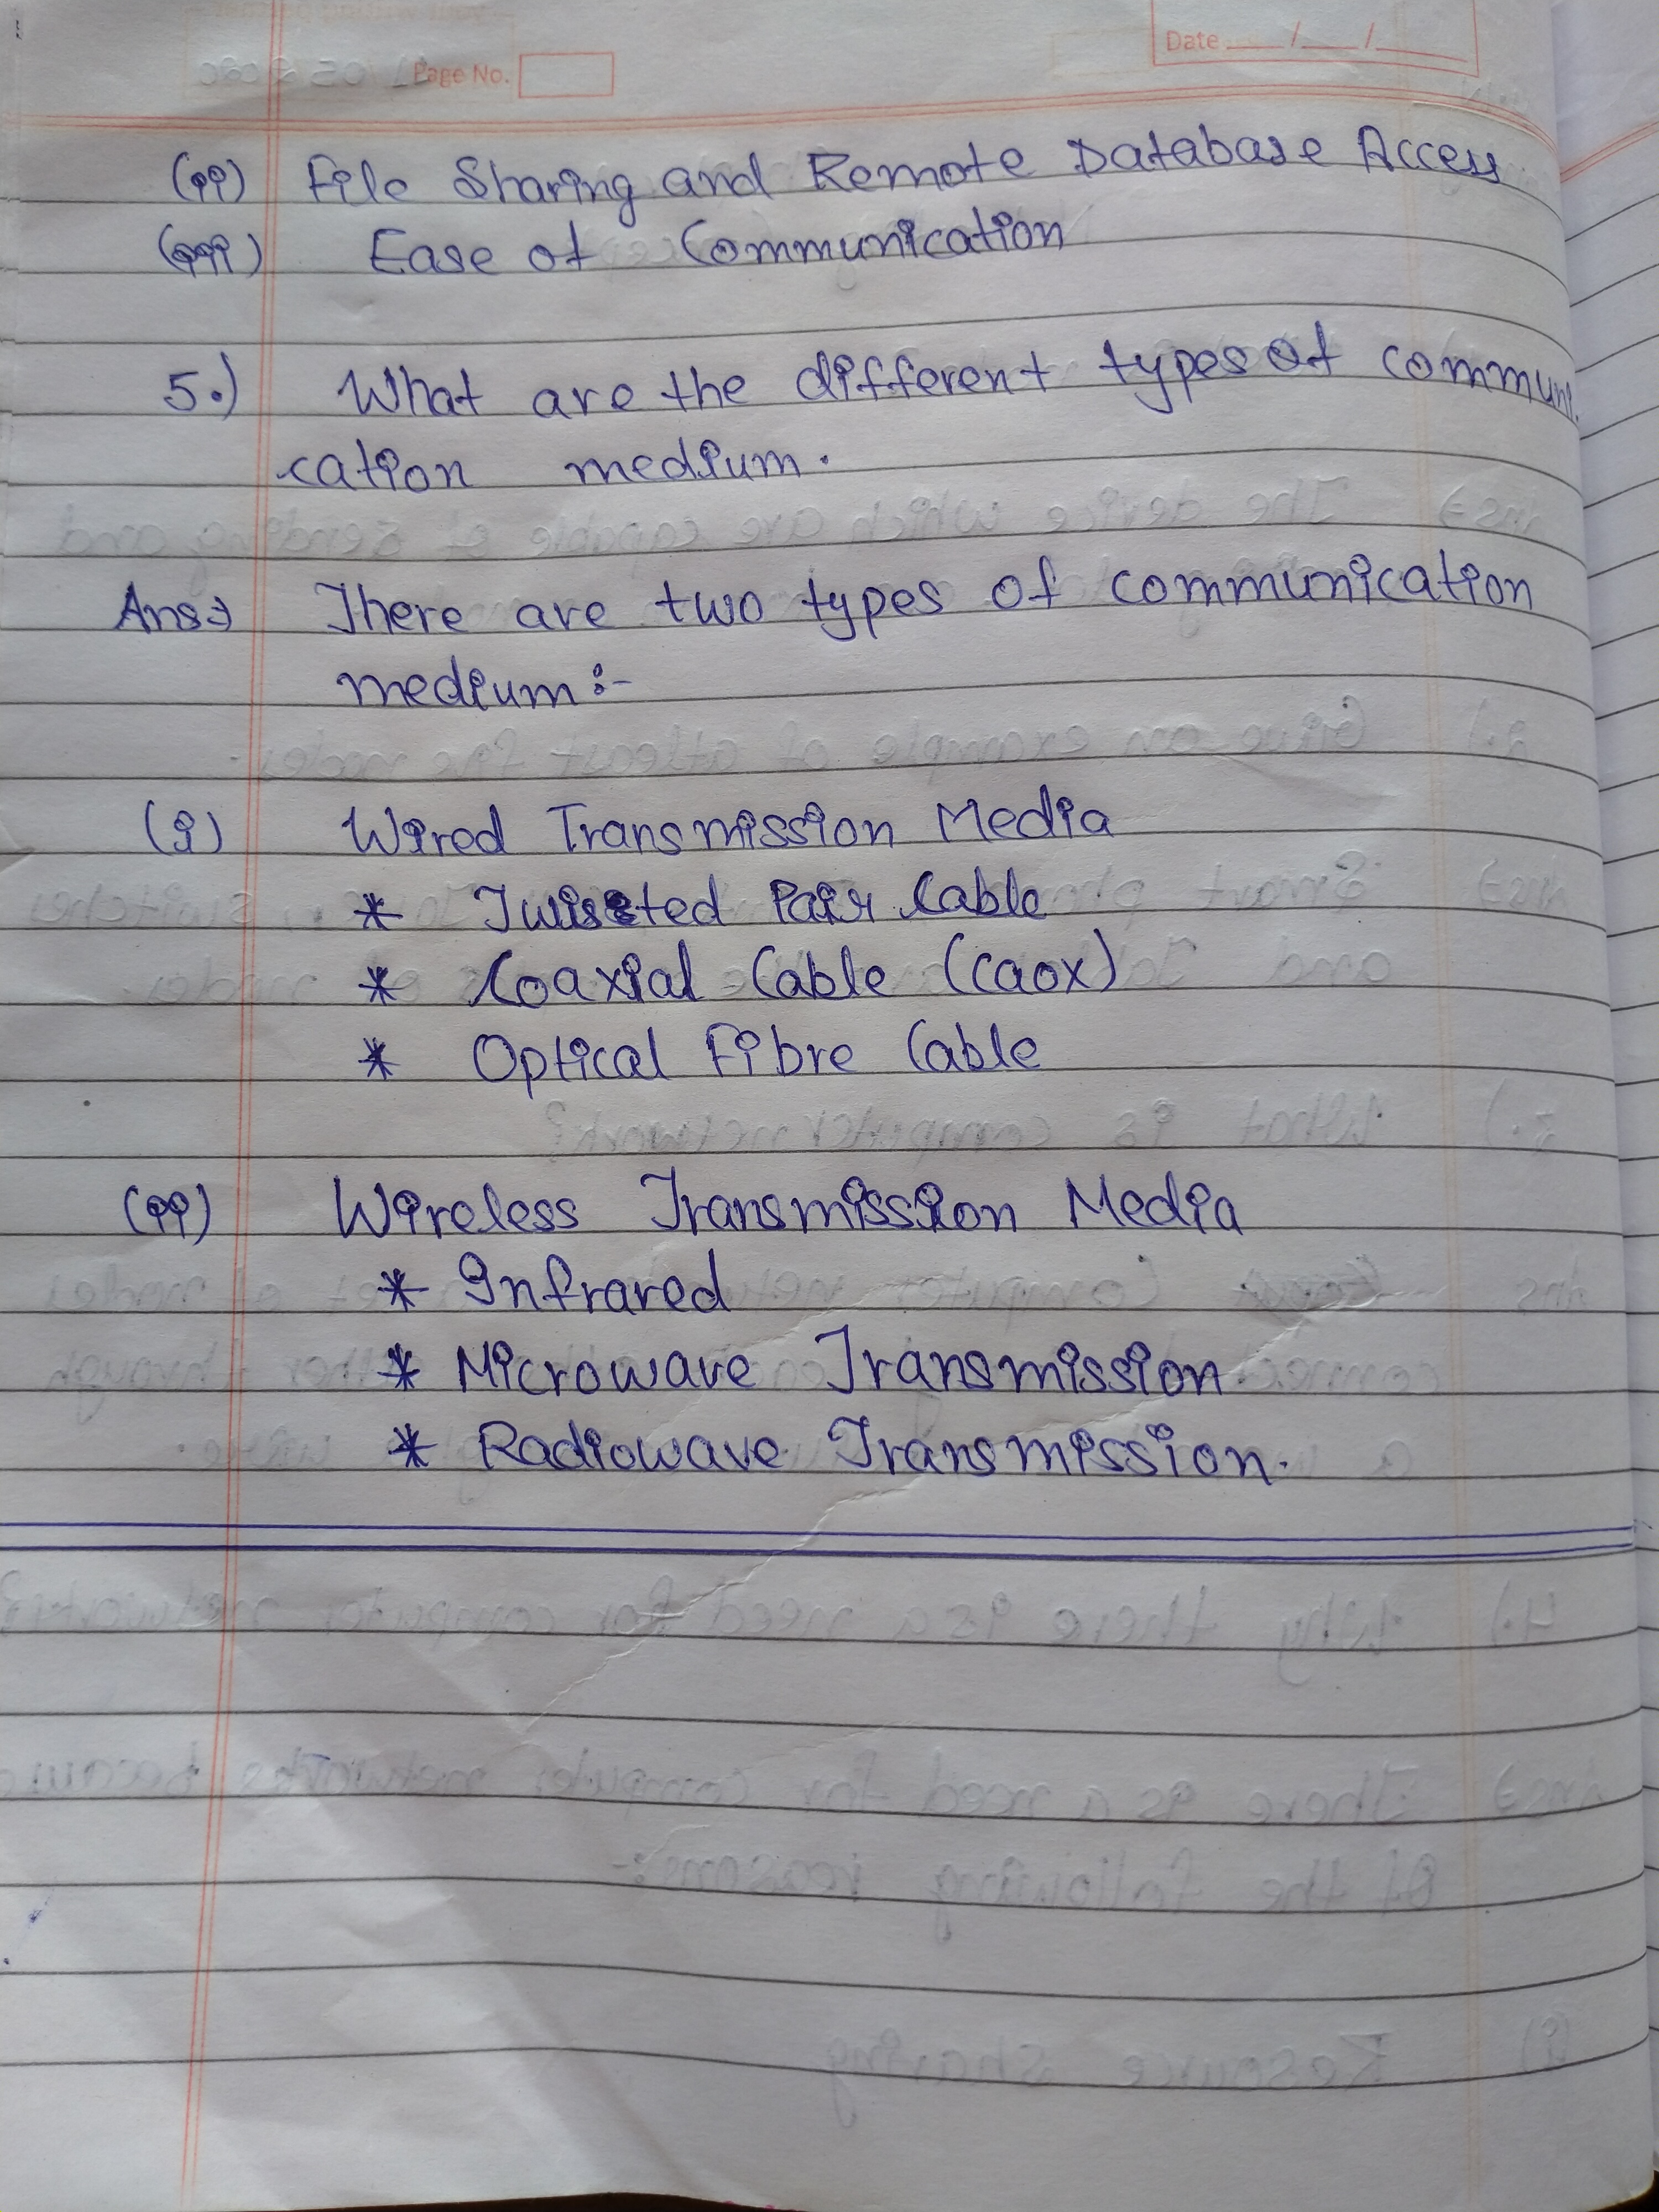 Page No.
Date __/__/__
(ii) File Sharing and Remote Database Access
(iii) Ease of Communication
5.) What are the different types of communi
cation medium.
Ans→ There are two types of communication
medium :-
(i) Wired Transmission Media
* Twisted Pair Cable
* Coaxial Cable (caox)
* Optical Fibre Cable
(ii) Wireless Transmission Media
* Infrared
* Microwave Transmission
* Radiowave Transmission.